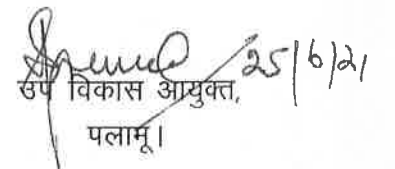 25/6/21
उप विकास आयुक्त,
पलामू।